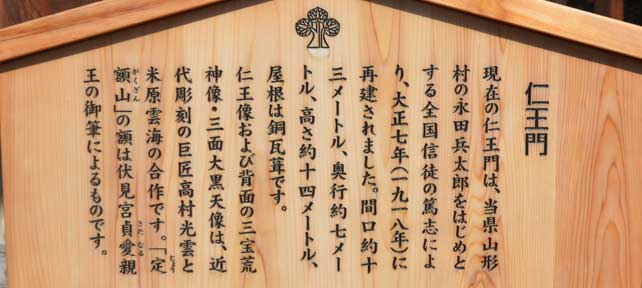 仁王門
現在の仁王門は、当県山形
村の永田兵太郎をはじめと
する全国信徒の篤志によ
り、大正七年(一九一八年)に
再建されました。間口約十
三メートル、奥行約七メー
トル、高さ約十四メートル、
屋根は銅瓦葺です。
仁王像および背面の三宝荒
神像・三面大黒天像は、近
代彫刻の巨匠高村光雲と
米原雲海の合作です。「定
額山」の額は伏見宮貞愛親
王の御筆によるものです。